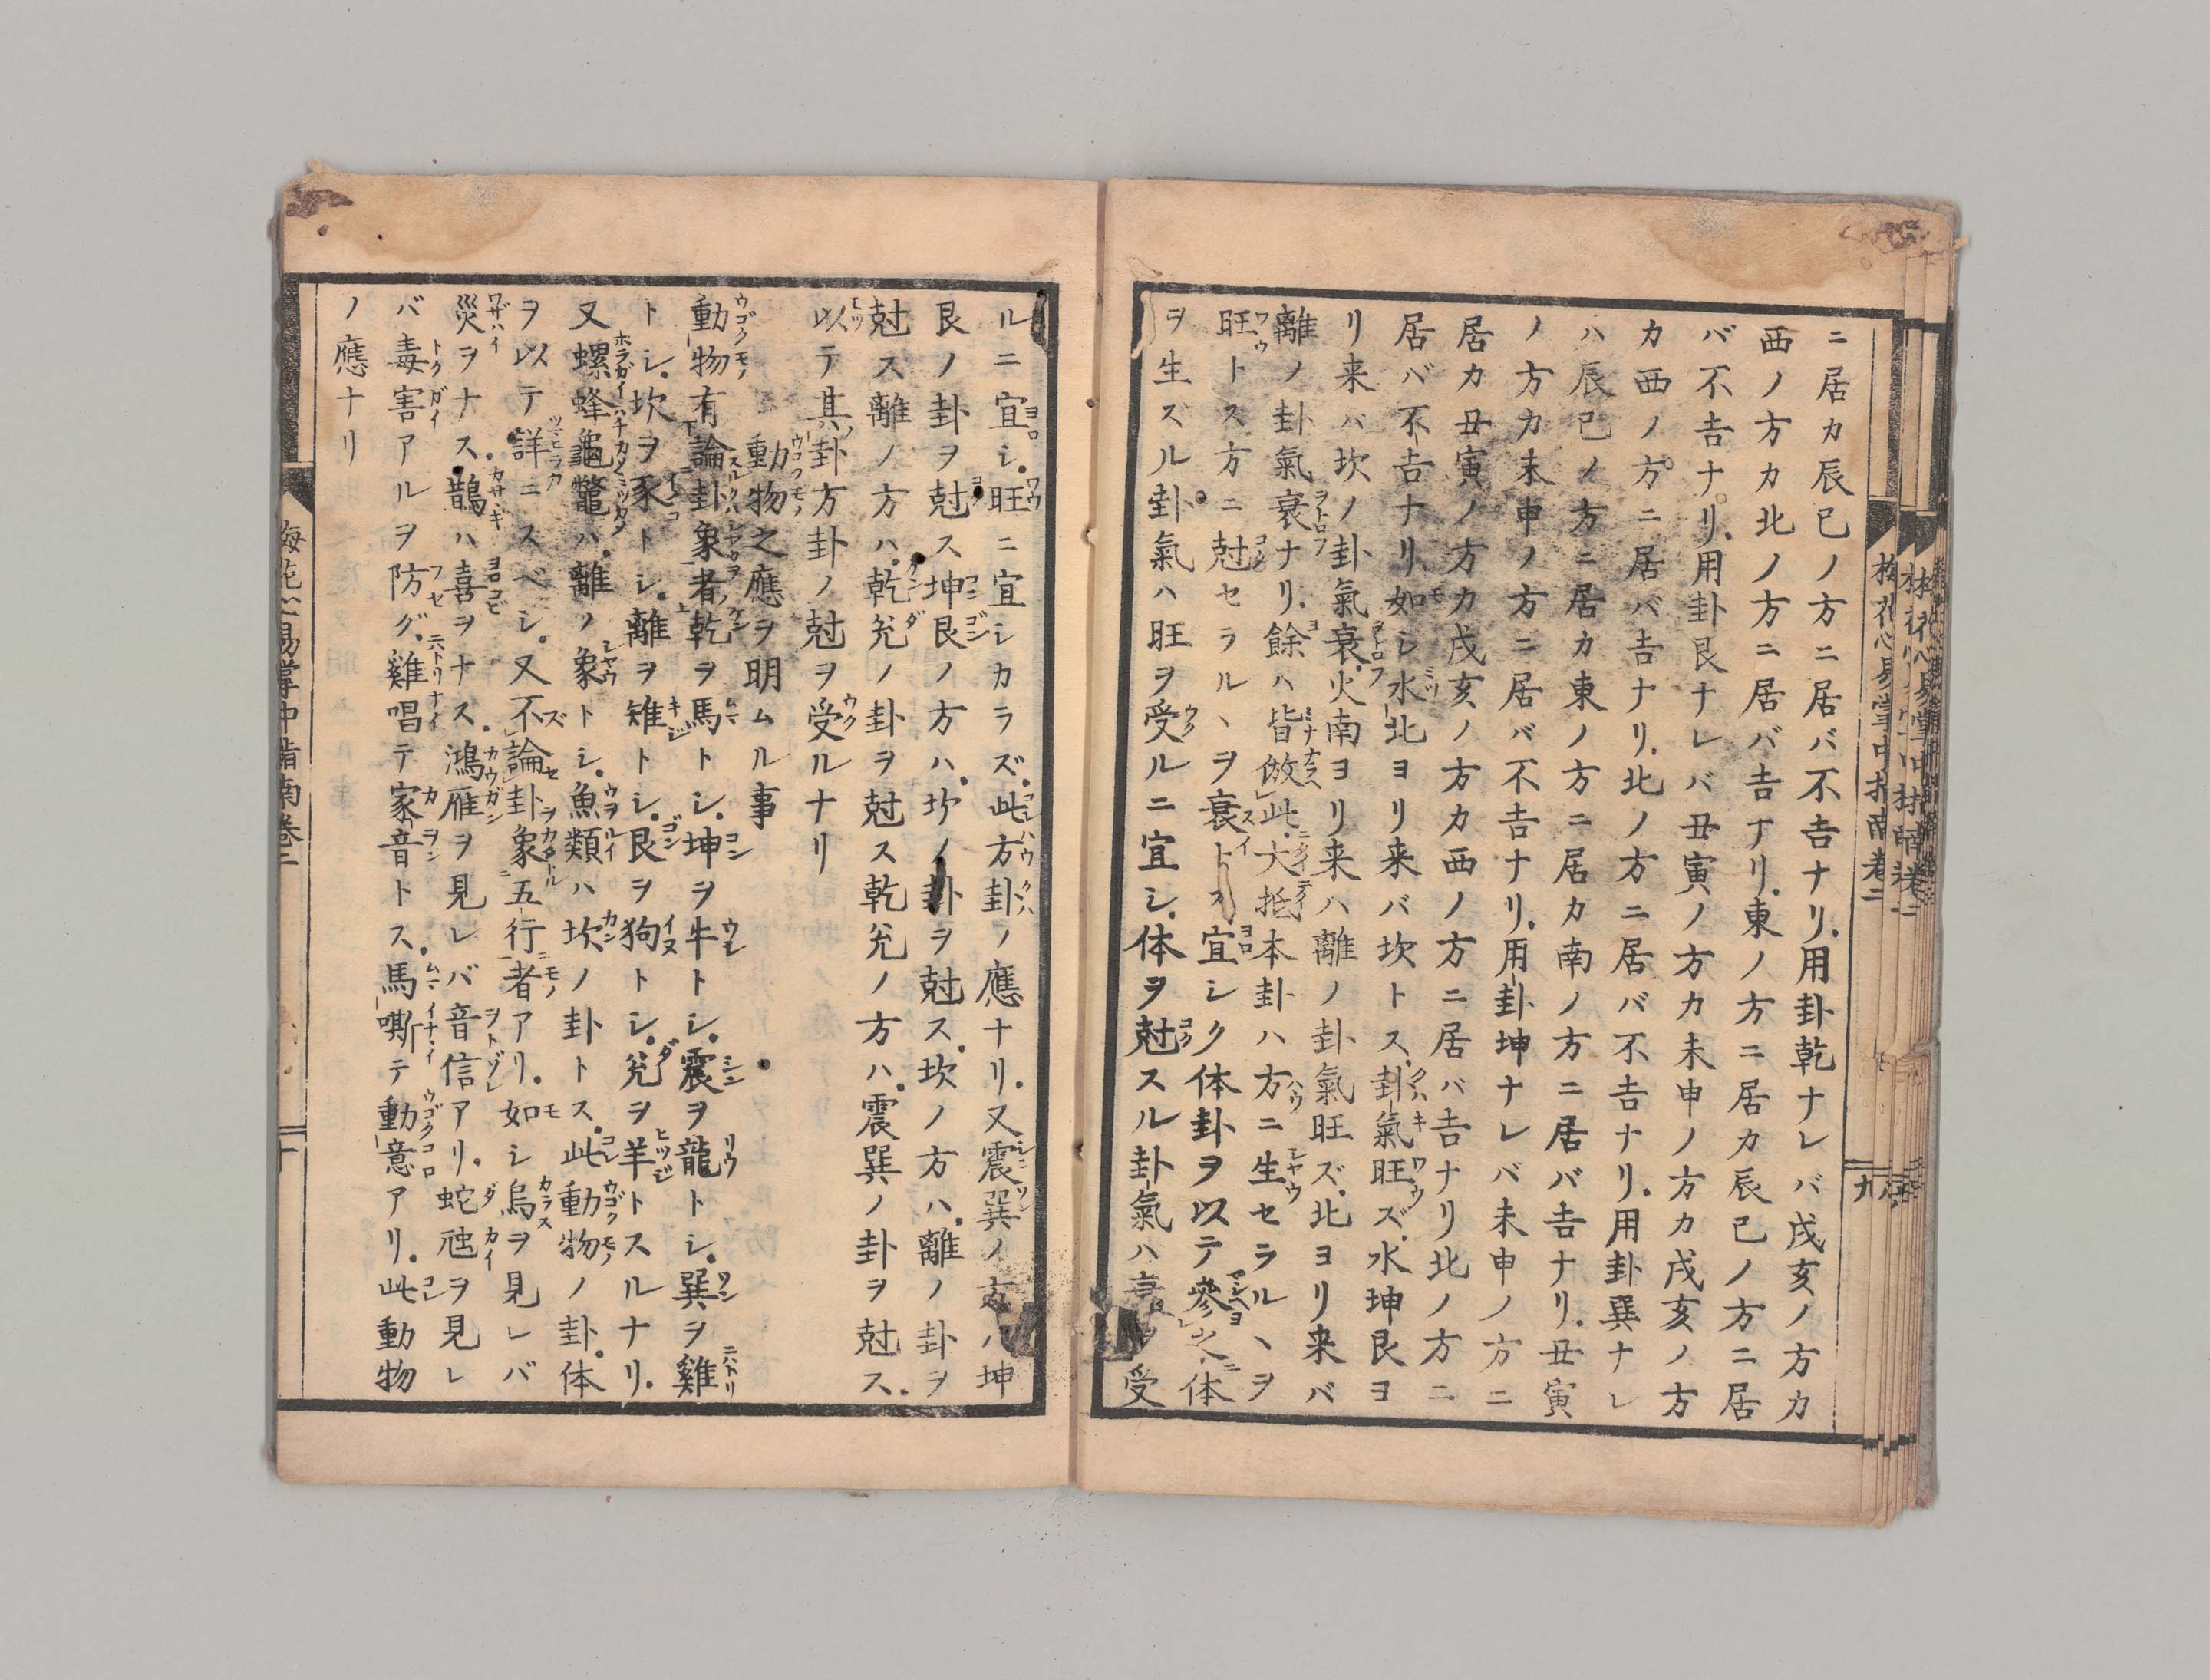 ニ居カ辰巳ノ方ニ居バ不吉ナリ.用卦乾ナレバ戌亥ノ方カ
西ノ方カ北ノ方ニ居バ吉ナリ.東ノ方ニ居カ辰巳ノ方ニ居
バ不吉ナリ.用卦艮ナレバ丑寅ノ方カ未申ノ方カ戌亥ノ方
カ西ノ方ニ居バ吉ナリ.北ノ方ニ居バ不吉ナリ.用卦巽ナレ
ハ辰巳ノ方ニ居カ東ノ方ニ居カ南ノ方ニ居バ吉ナリ.丑寅
ノ方カ未申ノ方ニ居バ不吉ナリ.用卦坤ナレバ未申ノ方ニ
居カ丑寅ノ方カ戌亥ノ方カ西ノ方ニ居バ吉ナリ北ノ方ニ
居バ不吉ナリ.如シ水北ヨリ来バ坎トス.卦氣旺ズ.水坤艮ヨ
リ来バ坎ノ卦氣衰.火南ヨリ来ハ離ノ卦氣旺ズ.北ヨリ来バ
離ノ卦氣衰ナリ.餘ハ皆倣此.大抵本卦ハ方ニ生セラルヽヲ
旺トス方ニ尅セラルヽヲ衰トス宜シク体卦ヲ以テ參之体
ヲ生ズル卦氣ハ旺ヲ受ルニ宜シ.体ヲ尅スル卦氣ハ衰ヲ受
梅花心易掌中指南巻二
九
ルニ宜シ.旺ニ宜シカラズ.此方卦ノ應ナリ.又震巽ノ方ハ坤
艮ノ卦ヲ尅ス坤艮ノ方ハ.坎ノ卦ヲ尅ス.坎ノ方ハ.離ノ卦ヲ
尅ス離ノ方ハ.乾兊ノ卦ヲ尅ス乾兊ノ方ハ.震巽ノ卦ヲ尅ス.
以テ其卦方卦ノ尅ヲ受ルナリ
動物之應ヲ明ムル事
動物有論卦象者乾ヲ馬トシ.坤ヲ牛トシ.震ヲ龍トシ.巽ヲ雞
トシ.坎ヲ豕トシ.離ヲ雉トシ.艮ヲ狗トシ.兊ヲ羊トスルナリ.
又螺蜂龜鼈ハ.離ノ象トシ.魚類ハ坎ノ卦トス.此動物ノ卦体
ヲ以テ詳ニスベシ.又不論卦象五行者アリ.如シ烏ヲ見レバ
災ヲナス.鵲ハ喜ヲナス.鴻雁ヲ見レバ音信アリ.蛇虺ヲ見レ
バ毒害アルヲ防グ.雞唱テ家音トス.馬嘶テ動意アリ.此動物
ノ應ナリ
梅花心易掌中指南巻二
十